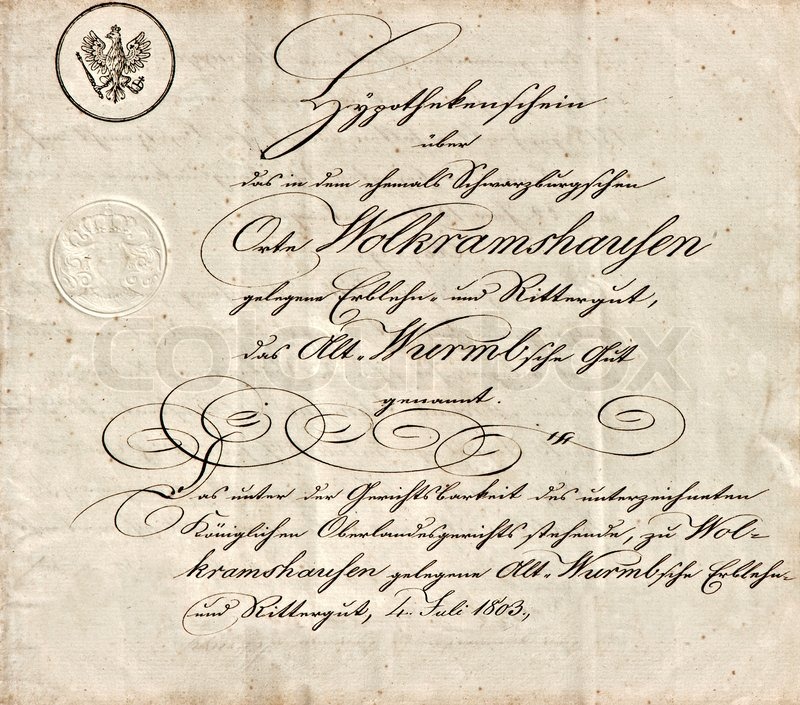 Hypothekenschein
über
das in dem ehemals Schwarzburgschen
Orte Wolkramshausen
gelegene Erblehn- und Rittergut,
das Alt-Wurmbsche Gut
genannt.
Das unter der Gerichtsbarkeit des unterzeichneten
Königlichen Oberlandesgerichts stehende, zu Wol-
kramshausen gelegene Alt-Wurmbsche Erblehn-
und Rittergut, 4. Juli 1803.,
colourbox